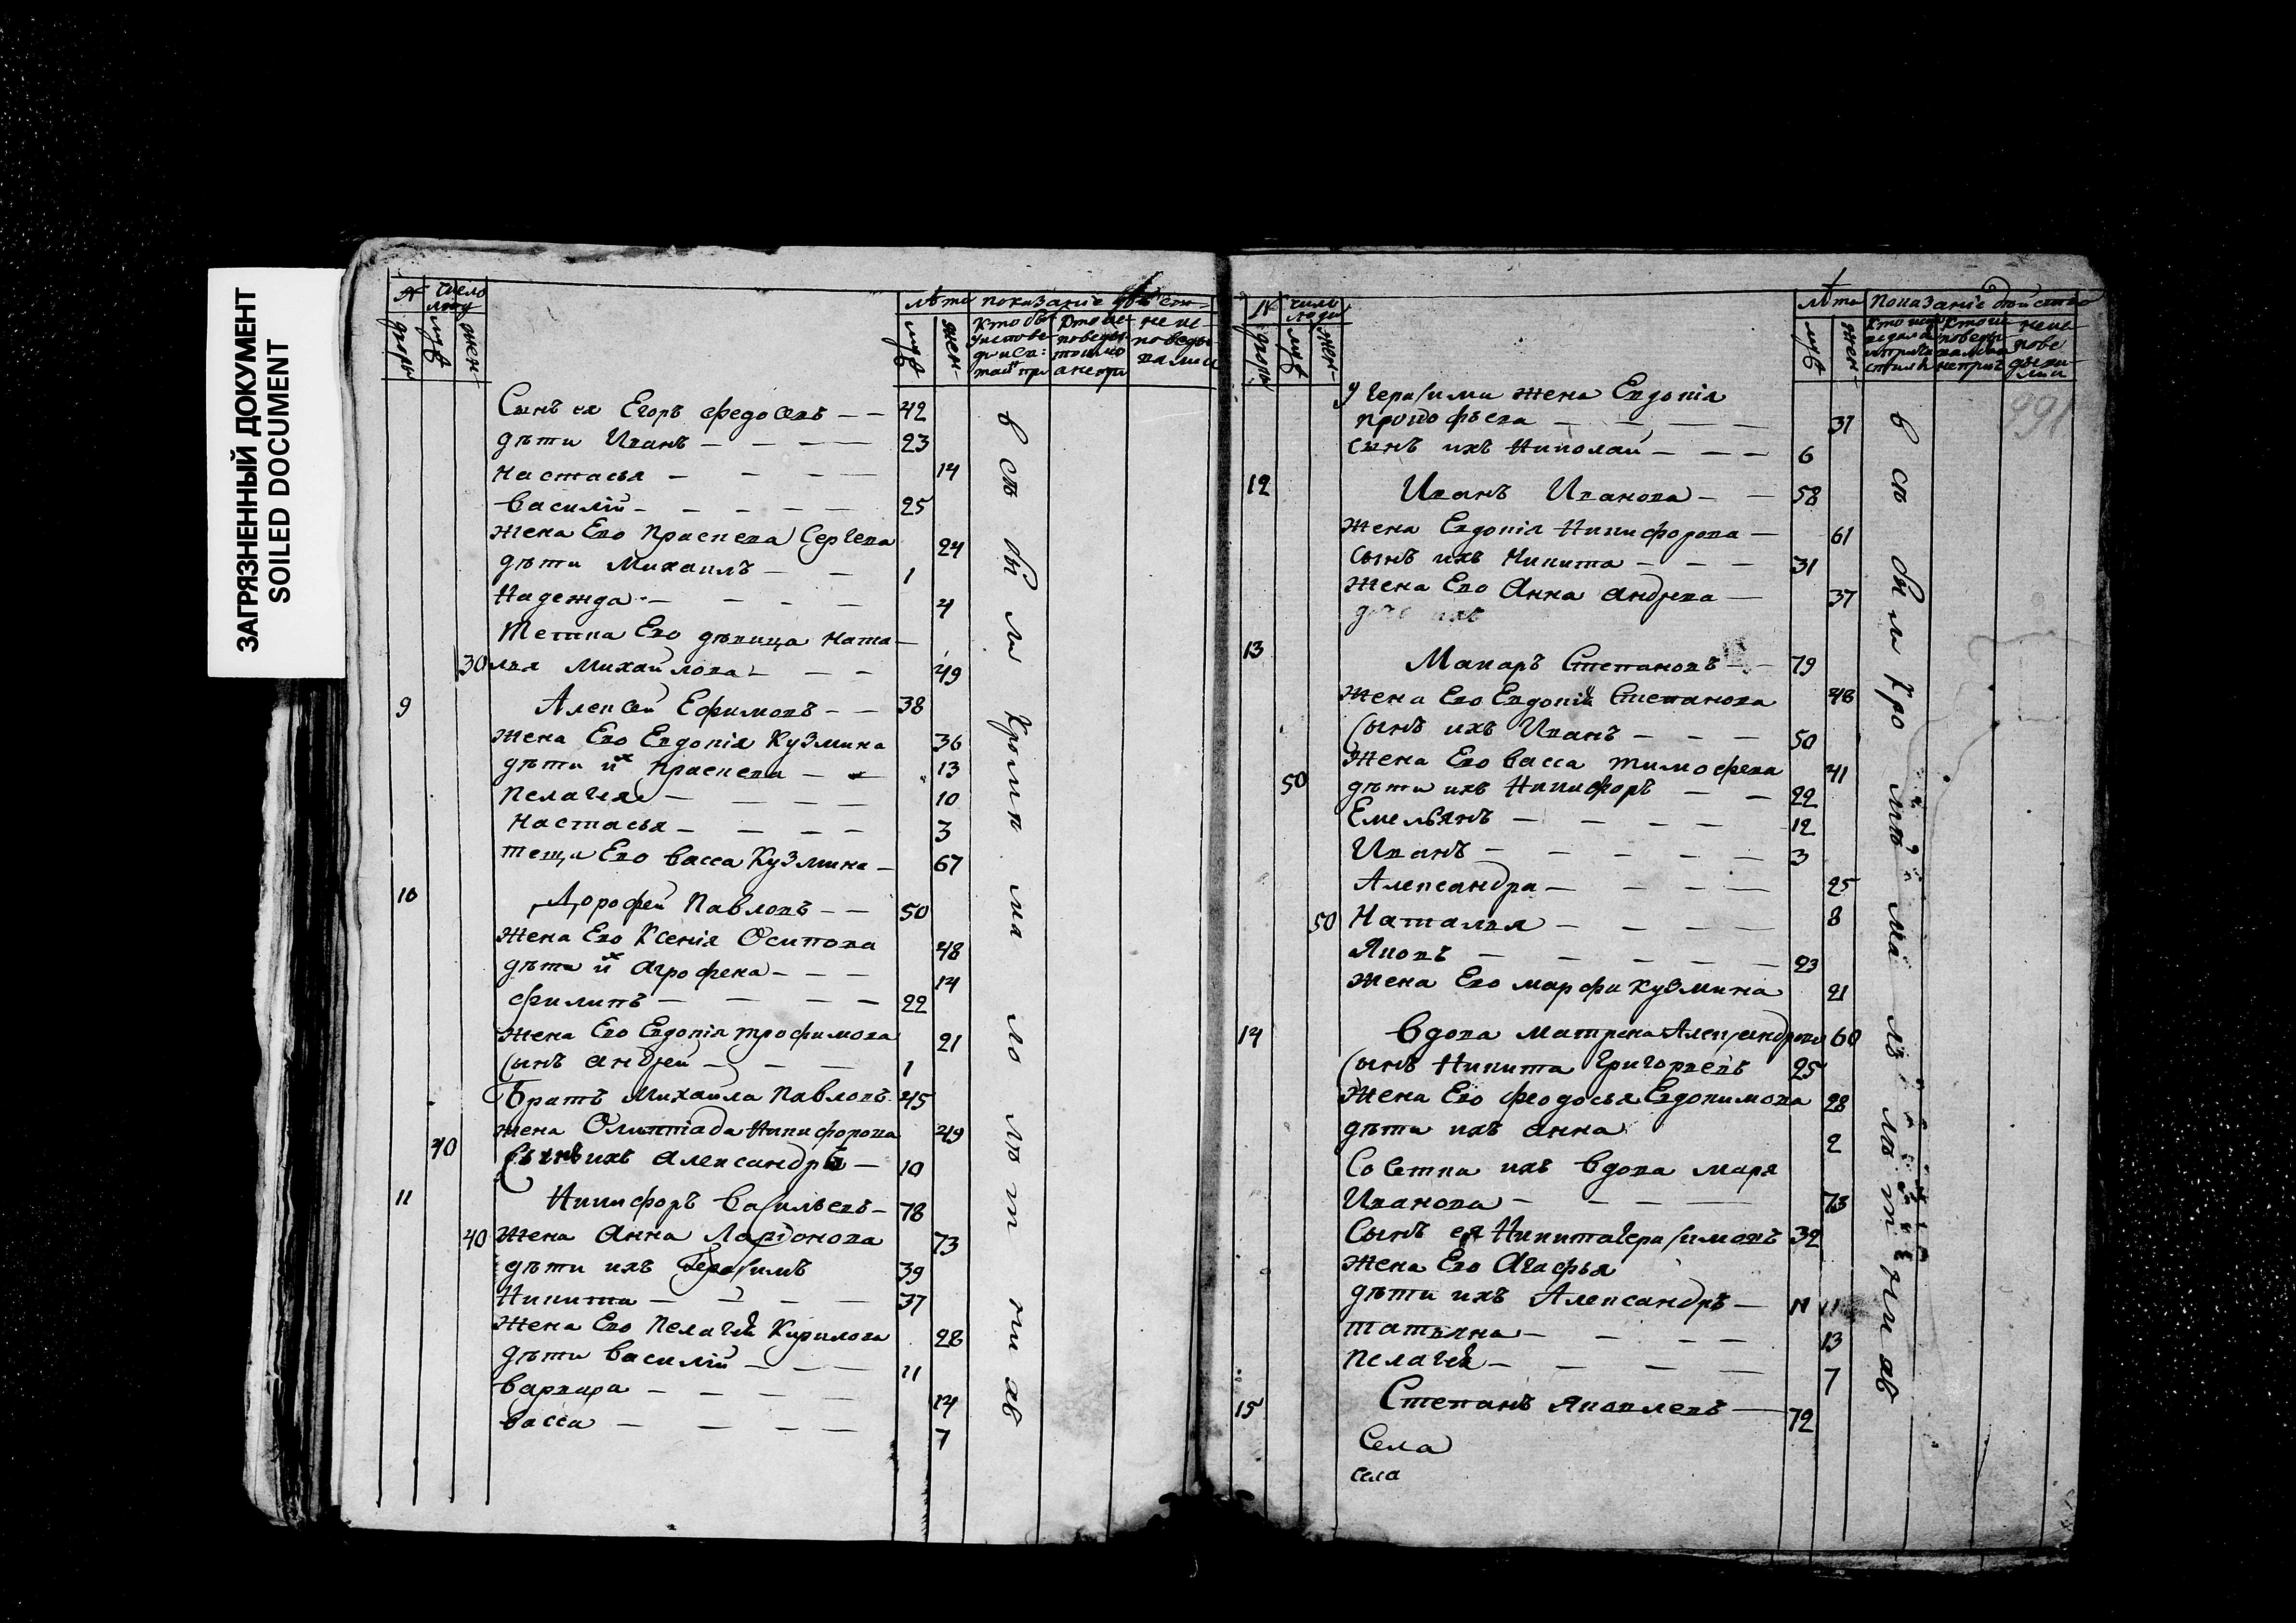 ЗАГРЯЗНЕННЫЙ ДОКУМЕНТ
SOILED DOCUMENT
№ число люд лѣта показаніе дѣйст
дворы муж жен муж жен
Сынъ ея Егоръ Федосеевъ — — 42
дѣти Иванъ — — — — 23
Настасья — — — — 14
Василій — — — — — 25
жена Ево Прасковя Сергѣева 24
дѣти Михаилъ — — 1
Надежда — — — — 4
Тетка Ево дѣвица Ната—
30 лья Михайлова — — — 49
9 Алексѣй Ефимовъ — — 38
жена Ево Евдокія Кузмина 36
дѣти их Прасковя — — 13
Пелагея — — — — 10
Настасья — — — — 3
теща Ево Васса Кузмина — 67
10 Дорофей Павловъ — — 50
жена Ево Ксенія Осипова 48
дѣти их Агрофена — — — 14
Филипъ — — — — 22
жена Ево Евдокія Трофимова 21
сынъ Андрей — — — 1
Братъ Михайла Павловъ 45
жена Олимпіада Никифорова 49
40 Сынъ ихъ Александръ — 10
11 Никифоръ Васильевъ — 78
40 жена Анна Ларіонова 73
дѣти ихъ Герасимъ 39
Никита — — — — 37
жена Ево Пелагея Кирилова 28
дѣти Василій — — — 11
Варвара — — — — 14
Васса — — — — 7
всѣ были кромѣ малолѣтних
№ число люди лѣта Показаніе дѣйство
дворы муж жен муж жен
991
у Герасима жена Евдокія
Прокофьева — — — — 31
сынъ ихъ Николай — — — 6
12 Иванъ Иванова — — 58
жена Евдокія Никифорова — 61
сынъ ихъ Никита — — — 31
жена Ево Анна Андрева — 37
13 Макаръ Степановъ — — 79
жена Ево Евдокія Степанова 48
сынъ ихъ Иванъ — — — 50
жена Ево Васса Тимофеева 41
50 дѣти ихъ Никифоръ — — 22
Емельянъ — — — — 12
Иванъ — — — — — 3
Александра — — — — 25
50 Наталья — — — — 8
Яковъ — — — — — 23
жена Ево Марфа Кузмина 21
14 Вдова Матрена Александрова 60
сынъ Никита Григорьевъ 25
жена Ево Феодосья Евдокимова 28
дѣти ихъ Анна 2
Соседка ихъ вдова Маря
Иванова — — — — 73
Сынъ ея Никита Герасимовъ 32
жена Ево Агафья
дѣти ихъ Александръ — 11
Татьяна — — — — 13
Пелагея — — — — 7
15 Степанъ Яковлевъ — 72
Села
села